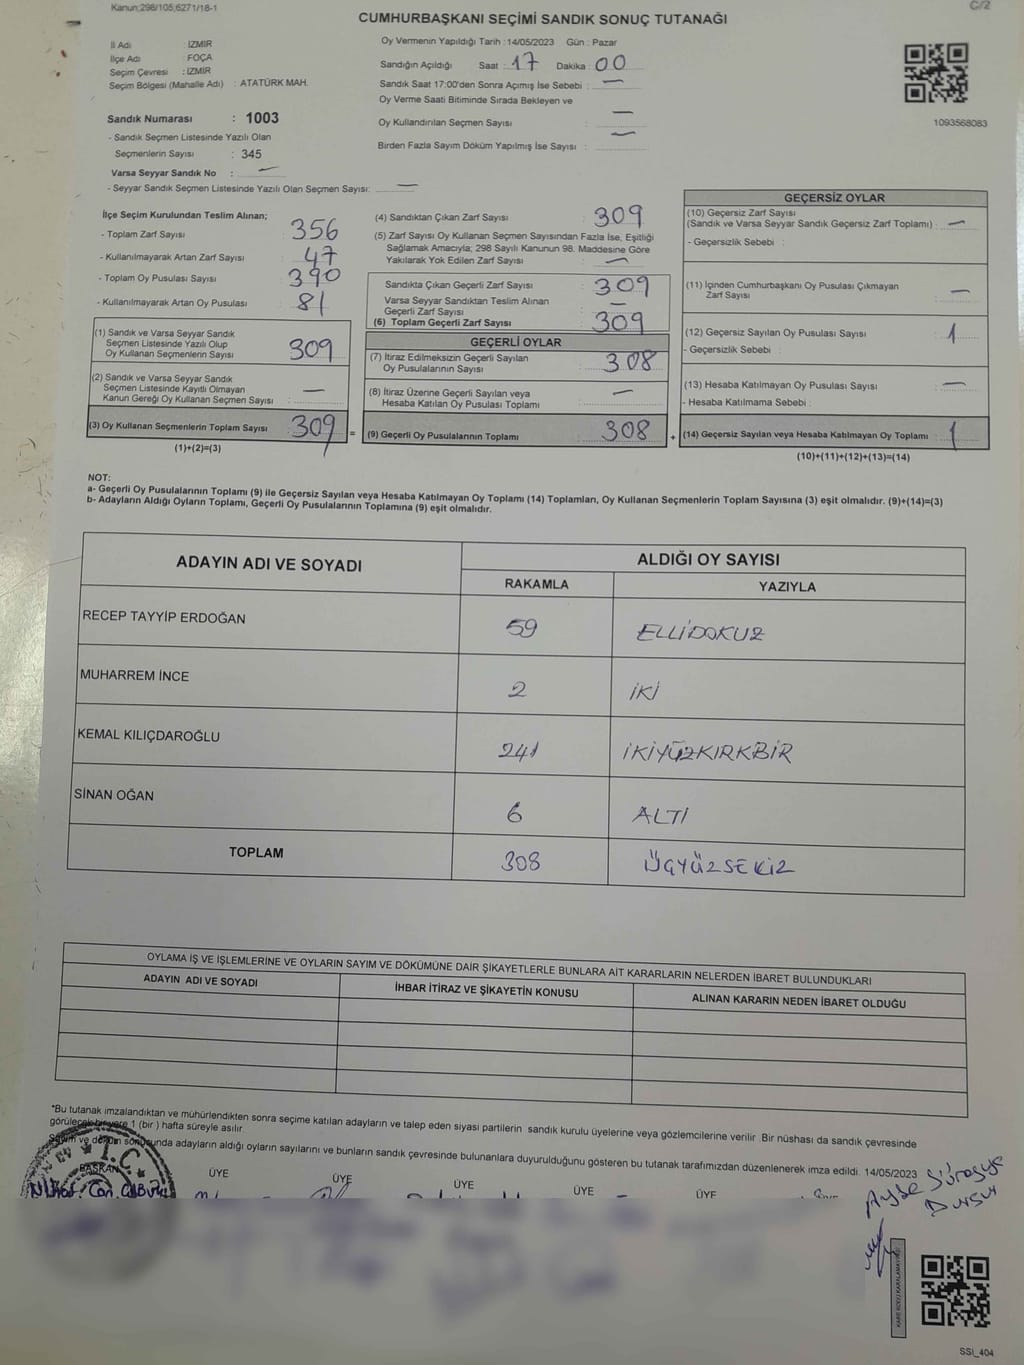 Kanun;298/105;6271/18-1
C/2
CUMHURBAŞKANI SEÇİMİ SANDIK SONUÇ TUTANAĞI
İl Adı : İZMİR
İlçe Adı : FOÇA
Seçim Çevresi : İZMİR
Seçim Bölgesi (Mahalle Adı) : ATATÜRK MAH.
Sandık Numarası : 1003
- Sandık Seçmen Listesinde Yazılı Olan
Seçmenlerin Sayısı : 345
Varsa Seyyar Sandık No : —
- Seyyar Sandık Seçmen Listesinde Yazılı Olan Seçmen Sayısı: —
Oy Vermenin Yapıldığı Tarih :14/05/2023 Gün : Pazar
Sandığın Açıldığı Saat : 17 Dakika : 00
Sandık Saat 17:00'den Sonra Açımış İse Sebebi : —
Oy Verme Saati Bitiminde Sırada Bekleyen ve
Oy Kullandırılan Seçmen Sayısı : —
Birden Fazla Sayım Döküm Yapılmış İse Sayısı : —
1093568083
İlçe Seçim Kurulundan Teslim Alınan;
- Toplam Zarf Sayısı : 356
- Kullanılmayarak Artan Zarf Sayısı : 47
- Toplam Oy Pusulası Sayısı : 390
- Kullanılmayarak Artan Oy Pusulası : 81
(1) Sandık ve Varsa Seyyar Sandık
Seçmen Listesinde Yazılı Olup
Oy Kullanan Seçmenlerin Sayısı : 309
(2) Sandık ve Varsa Seyyar Sandık
Seçmen Listesinde Kayıtlı Olmayan
Kanun Gereği Oy Kullanan Seçmen Sayısı : —
(3) Oy Kullanan Seçmenlerin Toplam Sayısı : 309
(1)+(2)=(3)
(4) Sandıktan Çıkan Zarf Sayısı : 309
(5) Zarf Sayısı Oy Kullanan Seçmen Sayısından Fazla İse, Eşitliği
Sağlamak Amacıyla; 298 Sayılı Kanunun 98. Maddesine Göre
Yakılarak Yok Edilen Zarf Sayısı : —
Sandıkta Çıkan Geçerli Zarf Sayısı : 309
Varsa Seyyar Sandıktan Teslim Alınan
Geçerli Zarf Sayısı : —
(6) Toplam Geçerli Zarf Sayısı : 309
GEÇERLİ OYLAR
(7) İtiraz Edilmeksizin Geçerli Sayılan
Oy Pusulalarının Sayısı : 308
(8) İtiraz Üzerine Geçerli Sayılan veya
Hesaba Katılan Oy Pusulası Toplamı : —
= (9) Geçerli Oy Pusulalarının Toplamı : 308 +
GEÇERSİZ OYLAR
(10) Geçersiz Zarf Sayısı
(Sandık ve Varsa Seyyar Sandık Geçersiz Zarf Toplamı) : —
- Geçersizlik Sebebi :
(11) İçinden Cumhurbaşkanı Oy Pusulası Çıkmayan
Zarf Sayısı : —
(12) Geçersiz Sayılan Oy Pusulası Sayısı : 1
- Geçersizlik Sebebi :
(13) Hesaba Katılmayan Oy Pusulası Sayısı : —
- Hesaba Katılmama Sebebi :
(14) Geçersiz Sayılan veya Hesaba Katılmayan Oy Toplamı : 1
(10)+(11)+(12)+(13)=(14)
NOT:
a- Geçerli Oy Pusulalarının Toplamı (9) ile Geçersiz Sayılan veya Hesaba Katılmayan Oy Toplamı (14) Toplamları, Oy Kullanan Seçmenlerin Toplam Sayısına (3) eşit olmalıdır. (9)+(14)=(3)
b- Adayların Aldığı Oyların Toplamı, Geçerli Oy Pusulalarının Toplamına (9) eşit olmalıdır.
ADAYIN ADI VE SOYADI ALDIĞI OY SAYISI
RAKAMLA YAZIYLA
RECEP TAYYİP ERDOĞAN 59 ELLİDOKUZ
MUHARREM İNCE 2 İKİ
KEMAL KILIÇDAROĞLU 241 İKİYÜZKIRKBİR
SİNAN OĞAN 6 ALTI
TOPLAM 308 ÜÇYÜZSEKİZ
OYLAMA İŞ VE İŞLEMLERİNE VE OYLARIN SAYIM VE DÖKÜMÜNE DAİR ŞİKAYETLERLE BUNLARA AİT KARARLARIN NELERDEN İBARET BULUNDUKLARI
ADAYIN ADI VE SOYADI İHBAR İTİRAZ VE ŞİKAYETİN KONUSU ALINAN KARARIN NEDEN İBARET OLDUĞU
*Bu tutanak imzalandıktan ve mühürlendikten sonra seçime katılan adayların ve talep eden siyasi partilerin sandık kurulu üyelerine veya gözlemcilerine verilir .Bir nüshası da sandık çevresinde
görülecek bir yere 1 (bir ) hafta süreyle asılır.
Sayım ve döküm sonucunda adayların aldığı oyların sayılarını ve bunların sandık çevresinde bulunanlara duyurulduğunu gösteren bu tutanak tarafımızdan düzenlenerek imza edildi. 14/05/2023
T.C.
BAŞKAN ÜYE ÜYE ÜYE ÜYE ÜYE
Can
Ayşe Süreyya
Dursun
SSI_404